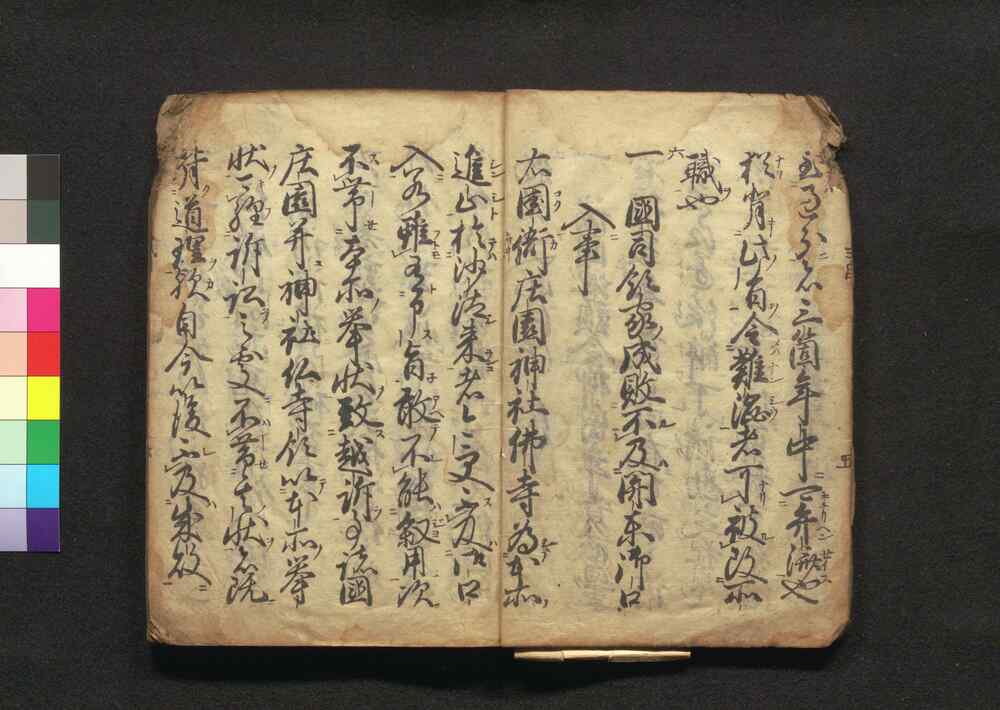 至過分者三箇年中可弁済也
猶背此旨令難渋者可被改所
職也
一六 國司領家成敗不及関東御口
入事
右國衙庄園神社佛寺為本所
進止於沙汰来者今更不及御口
入若雖有申旨敢不能叙用次
不帯本所挙状致越訴事諸國
庄園并神社仏寺領以本所挙
状可経訴訟之處不帯其状者既
背道理歟自今以後不及成敗